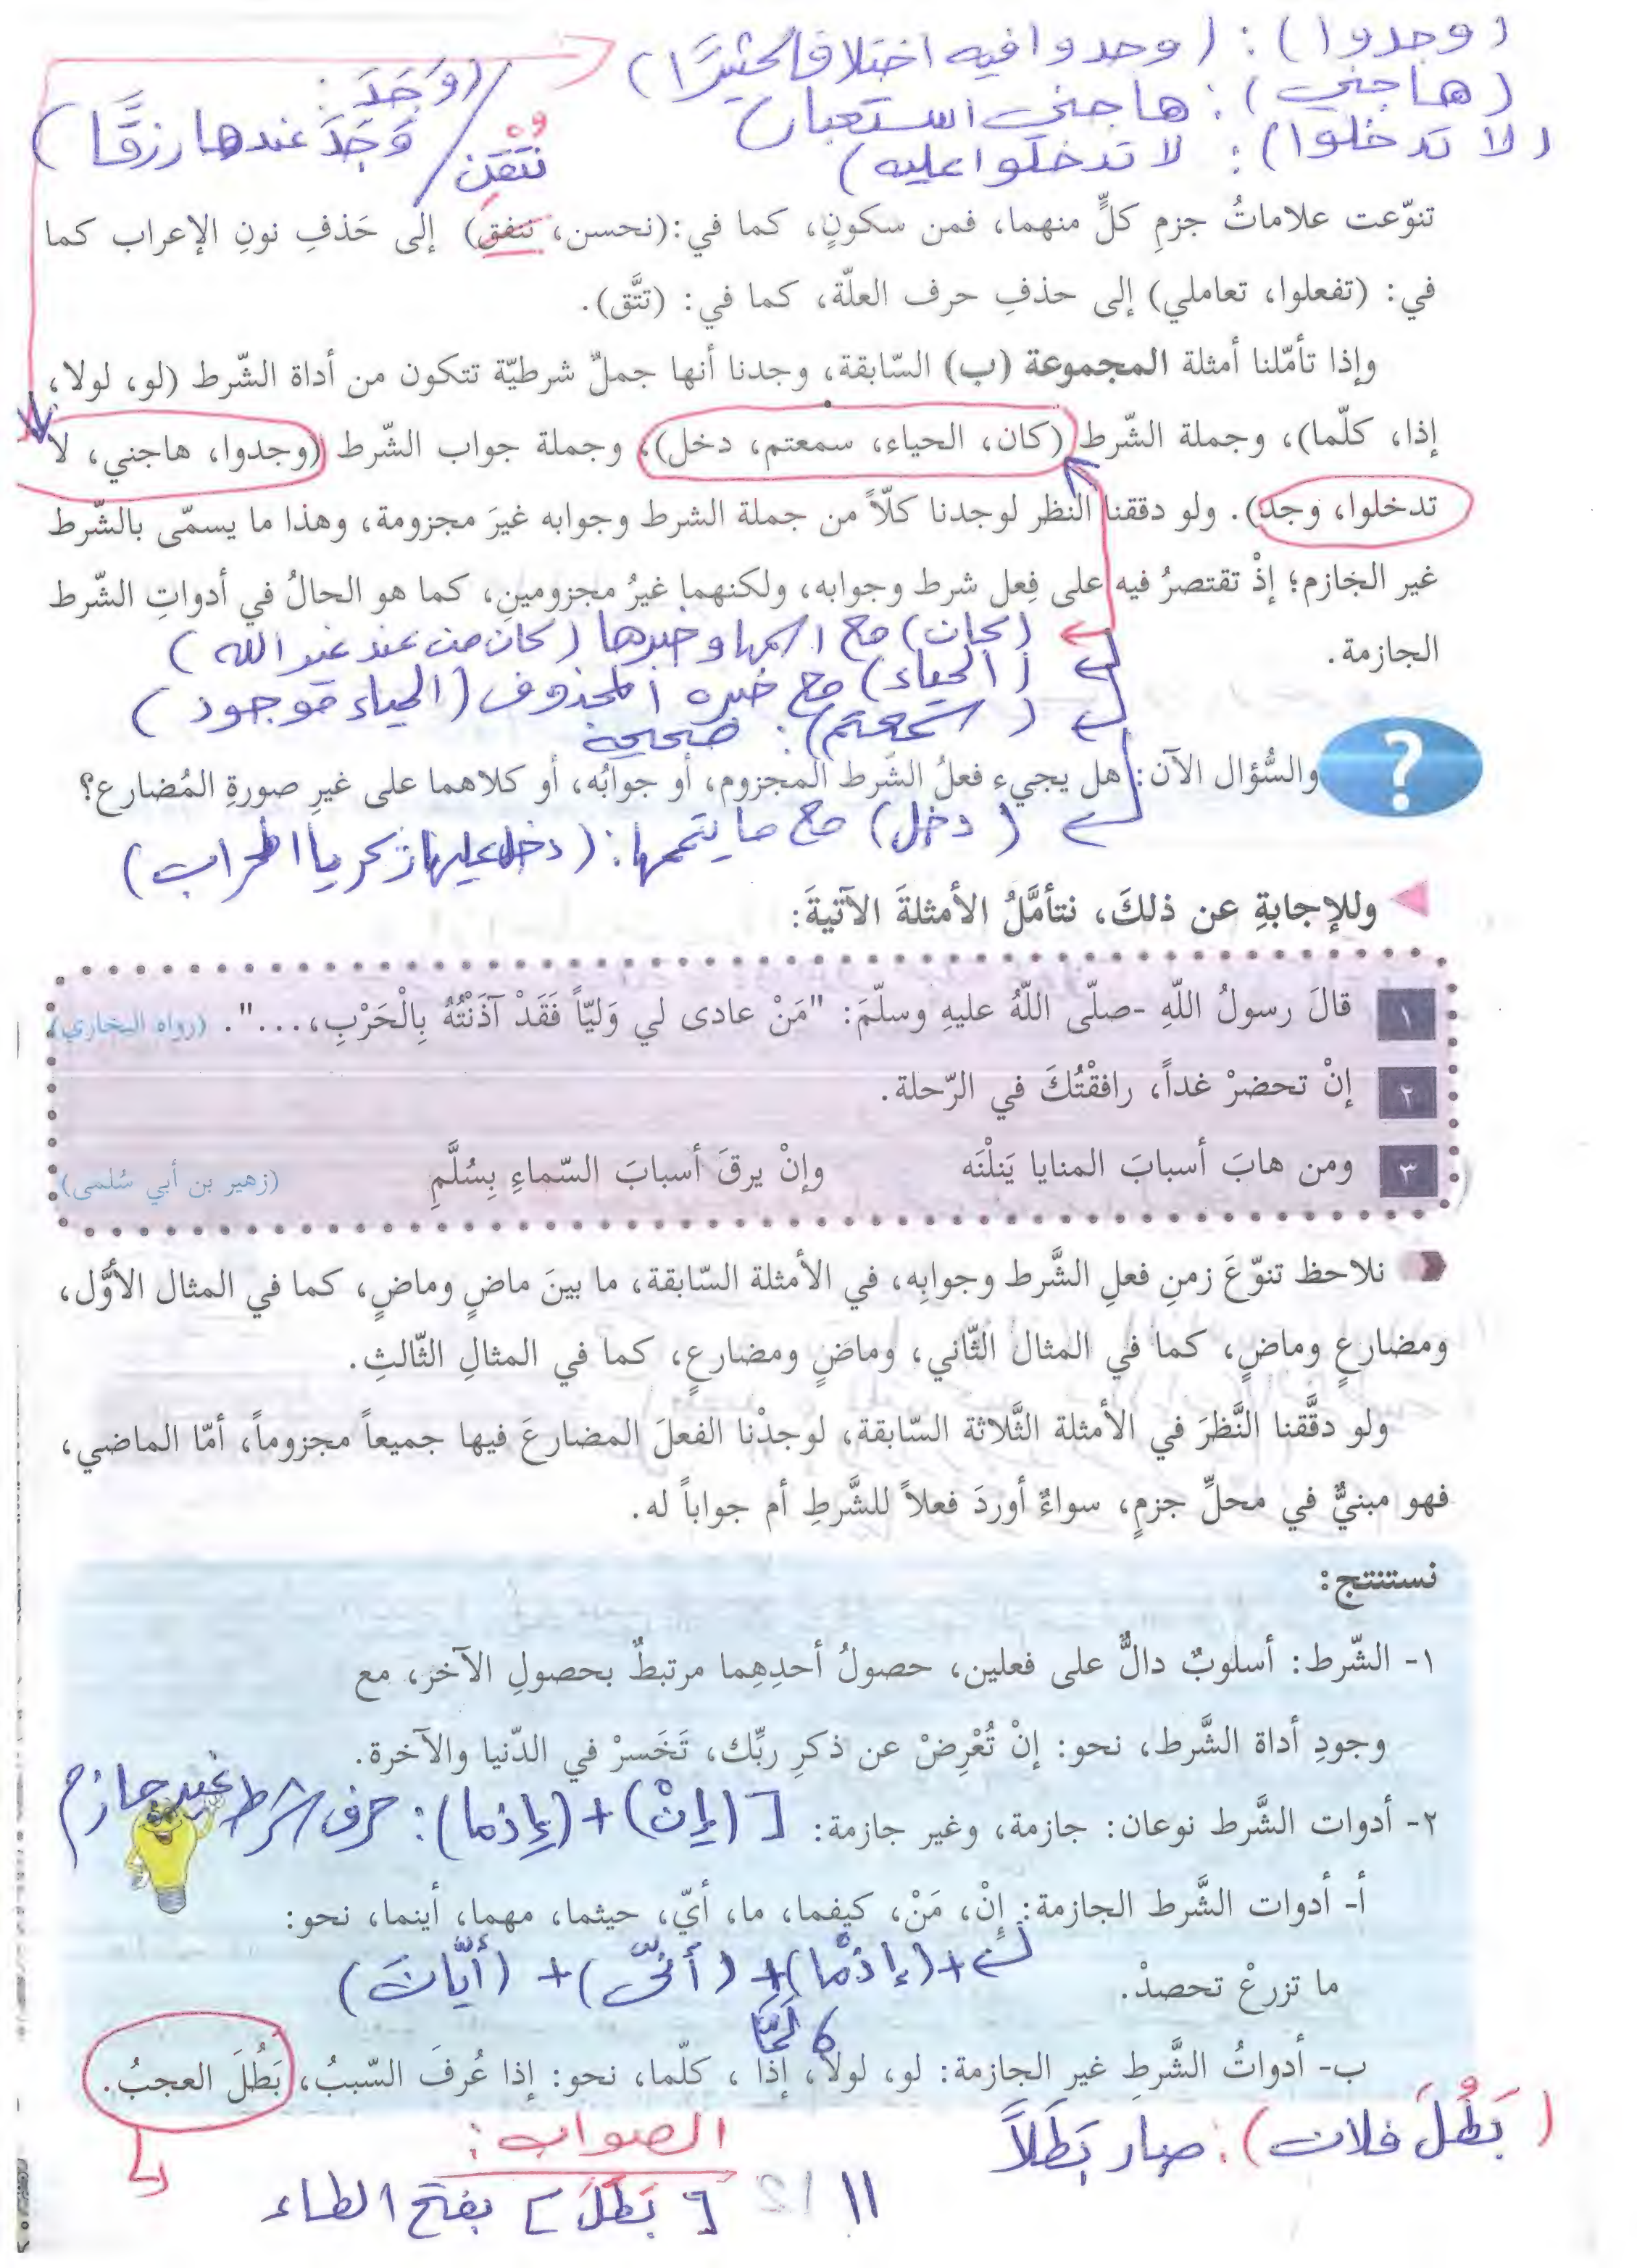 (وجدوا): (وجدوا فيه اختلافا كثيرًا)
(هاجني): هاجني استعبار)
(لا تدخلوا): لا تدخلوا عليه)
(وَجَدَ:
وَجَدَ عندها رزقًا)
نتقن
تنوّعت علاماتُ جزمِ كلٍّ منهما، فمن سكونٍ، كما في:(نحسن، ننفق) إلى حَذفِ نونِ الإعراب كما
في: (تفعلوا، تعاملي) إلى حذفِ حرف العلّة، كما في: (تتَّق).
وإذا تأمّلنا أمثلة المجموعة (ب) السّابقة، وجدنا أنها جملٌ شرطيّة تتكون من أداة الشّرط (لو، لولا،
إذا، كلّما)، وجملة الشّرط (كان، الحياء، سمعتم، دخل)، وجملة جواب الشّرط (وجدوا، هاجني، لا
تدخلوا، وجد). ولو دققنا النظر لوجدنا كلّاً من جملة الشرط وجوابه غيرَ مجزومة، وهذا ما يسمّى بالشّرط
غير الجازم؛ إذْ تقتصرُ فيه على فِعل شرط وجوابه، ولكنهما غيرُ مجزومينِ، كما هو الحالُ في أدواتِ الشّرط
الجازمة.
(كان) مع اسمها وخبرها (كان من عند غير الله)
(الحياء) مع خبره المحذوف (الحياء موجود)
(سمعتم): صحيحة
والسُّؤال الآن: هل يجيء فعلُ الشّرط المجزوم، أو جوابُه، أو كلاهما على غيرِ صورةِ المُضارع؟
(دخل) مع ما يتممها: (دخل عليها زكريا المحراب)
وللإجابةِ عن ذلكَ، نتأمَّلُ الأمثلةَ الآتيةَ:
١ قالَ رسولُ اللّهِ -صلّى اللّهُ عليهِ وسلّمَ: "مَنْ عادى لي وَليّاً فَقَدْ آذَنْتُهُ بِالْحَرْبِ،...". (رواه البخاري)
٢ إنْ تحضرْ غداً، رافقْتُكَ في الرّحلة.
٣ ومن هابَ أسبابَ المنايا يَنلْنَه وإنْ يرقَ أسبابَ السّماءِ بِسُلَّمِ (زهير بن أبي سُلمى)
نلاحظ تنوّعَ زمنِ فعلِ الشَّرط وجوابِه، في الأمثلة السّابقة، ما بينَ ماضٍ وماضٍ، كما في المثال الأوَّل،
ومضارعٍ وماضٍ، كما في المثال الثّاني، وماضٍ ومضارعٍ، كما في المثالِ الثّالثِ.
ولو دقَّقنا النَّظرَ في الأمثلة الثَّلاثة السّابقة، لوجدْنا الفعلَ المضارعَ فيها جميعاً مجزوماً، أمّا الماضي،
فهو مبنيٌّ في محلِّ جزمٍ، سواءٌ أوردَ فعلاً للشَّرطِ أم جواباً له.
نستنتج:
١- الشّرط: أسلوبٌ دالٌّ على فعلين، حصولُ أحدِهِما مرتبطٌ بحصولِ الآخر، مع
وجودِ أداة الشَّرط، نحو: إنْ تُعْرِضْ عن ذكرِ ربِّك، تَخَسرْ في الدّنيا والآخرة.
٢- أدوات الشَّرط نوعان: جازمة، وغير جازمة: [(إنْ) + (إذما): حرف شرط غير جازم
أ- أدوات الشَّرط الجازمة: إنْ، مَنْ، كيفما، ما، أيّ، حيثما، مهما، أينما، نحو:
ما تزرعْ تحصدْ.
+ (إذْما) + (أنّى) + (أيّانَ)
لمّا
ب- أدواتُ الشَّرطِ غير الجازمة: لو، لولا، إذا ، كلّما، نحو: إذا عُرفَ السّببُ، بَطُلَ العجبُ.
(بَطُلَ فلان): صار بَطَلاً
الصواب:
[بَطَلَ] بفتح الطاء
١١